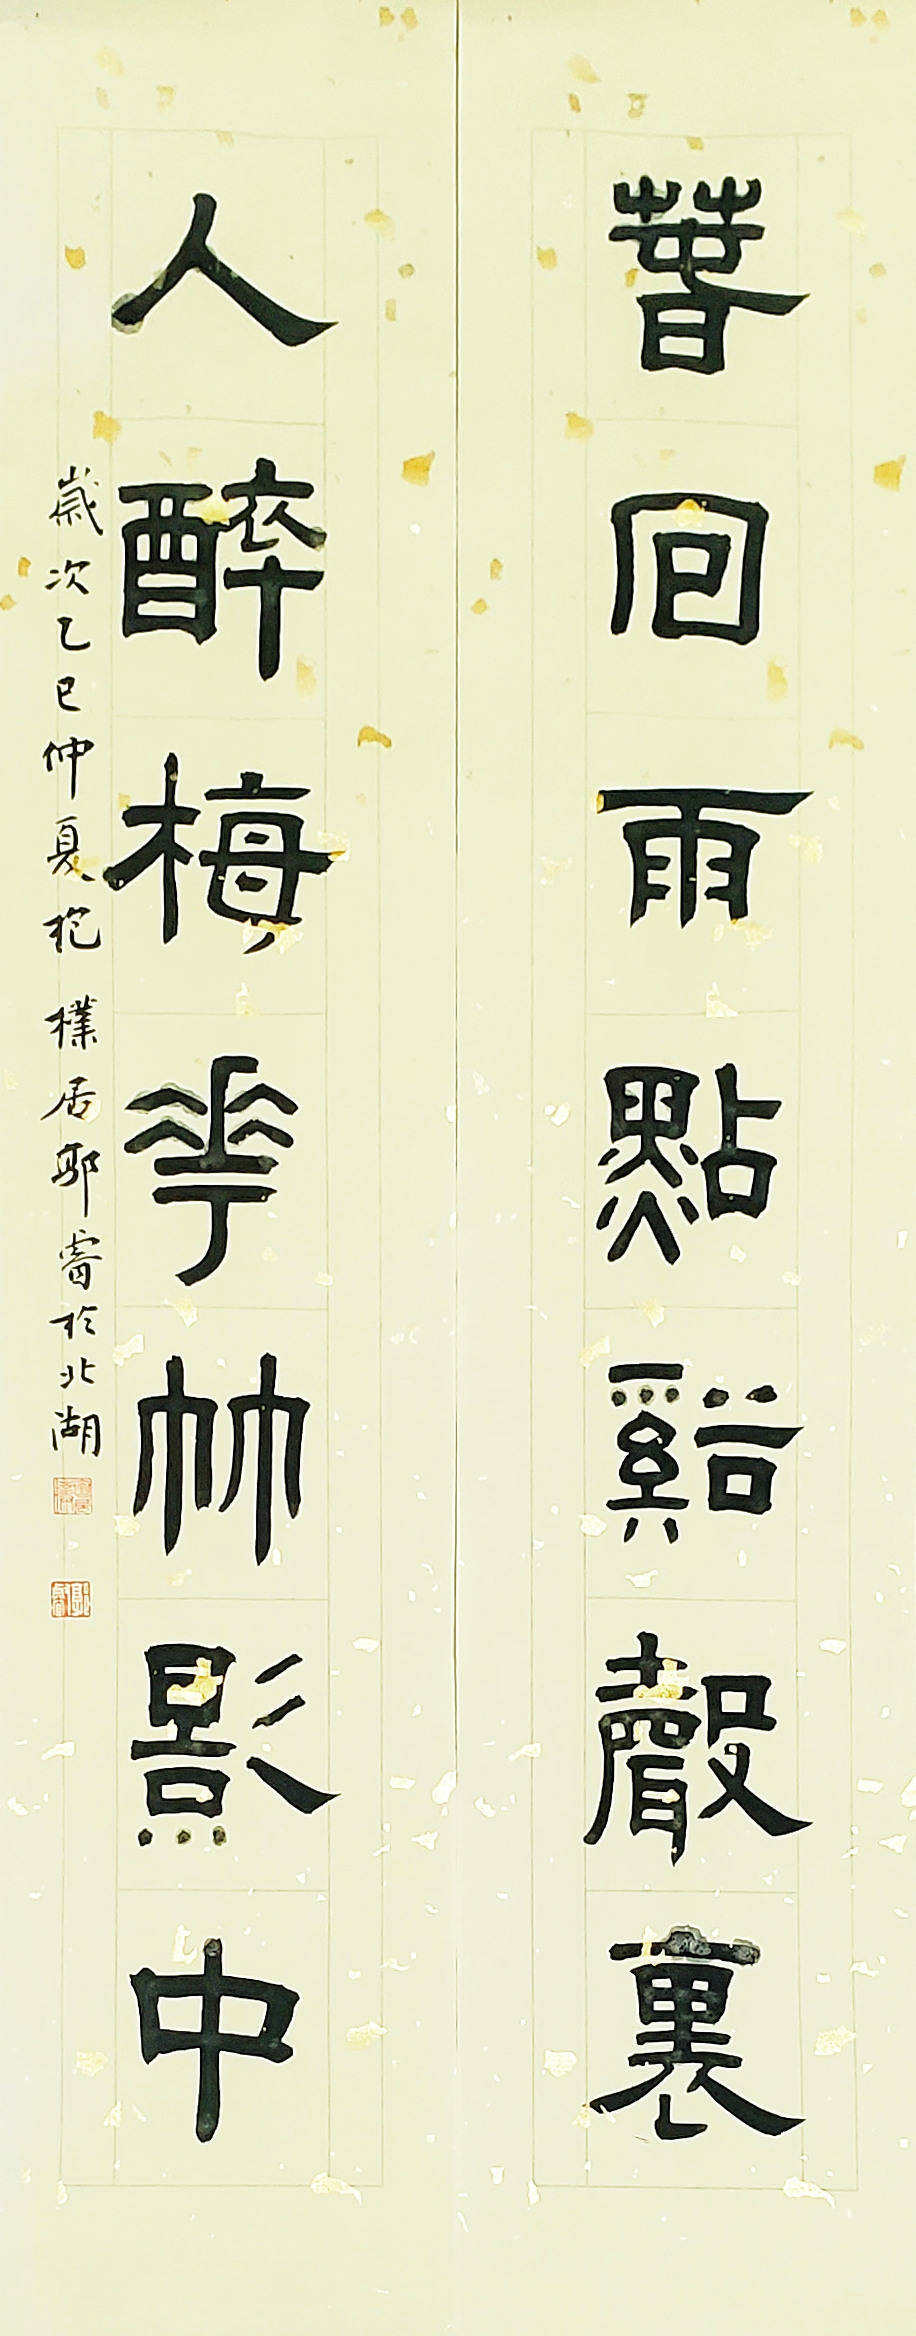 萅回雨點谿聲裏
人醉梅花竹影中
歲次乙巳仲夏抱樸居邢睿於北湖